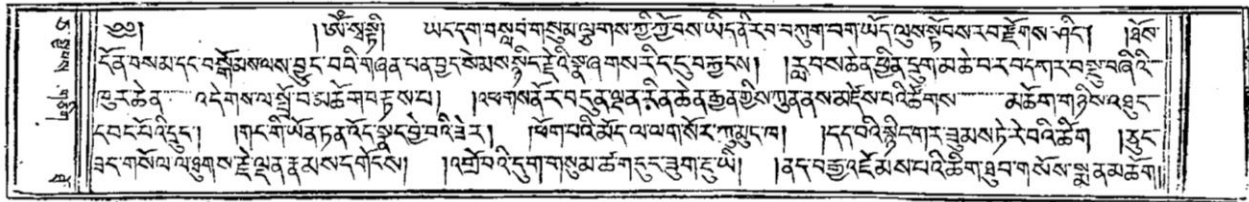 ༄༅། །ཨོཾ་སྭསྟི། ཡང་དག་བསླབ་གསུམ་ལྷུགས་ཀྱི་ཀྱོབས་ཡིད་ནི་རབ་བཀྲུག་བག་ཡོད་ལུས་སྟོབས་རབ་རྫོགས་ཤིང་། །ཐོས་
དོན་བསམ་དང་བསྒོམས་ལས་བྱུང་བའི་གཞན་ཕན་བྱང་སེམས་སྙིང་རྗེའི་སྣ་ཞགས་རིང་དུ་བརྐྱངས། །རླབས་ཆེན་ཕྲིན་དྲུག་མཆེ་བ་རབ་དཀར་བསྡུ་བཞིའི་
ཁུར་ཆེན་ འདེགས་ལ་སྤྲོ་བ་མཆོག་བརྙེས་པ། །འཕགས་ནོར་བདུན་ལྡན་རིན་ཆེན་རྒྱན་གྱིས་ཀུན་ནས་མཛེས་པའི་ཚོགས་ མཆོག་གཉིས་འཐུང་
དབང་པོའི་དྲུང་། །གང་གི་ཡོན་ཏན་འོད་སྣང་བྱེ་བའི་ཟེར། །ཕོག་པའི་མོད་ལ་ལག་སོར་ཀུ་མུད་ཁ། །དད་པའི་སྙིང་གར་ཟུམས་ཏེ་རེ་བའི་ཚིག །ཆུང་
ཟད་གསོལ་ལ་ཐུགས་རྗེ་ལྡན་རྣམས་དགོངས། །འགྲོ་བའི་དུག་གསུམ་ཚ་གདུང་ཟུག་རྔུ་ཡི། །ནད་བརྒྱ་འཇོམས་པའི་ཚིག་ཐུབ་གསོས་སྨན་མཆོག།